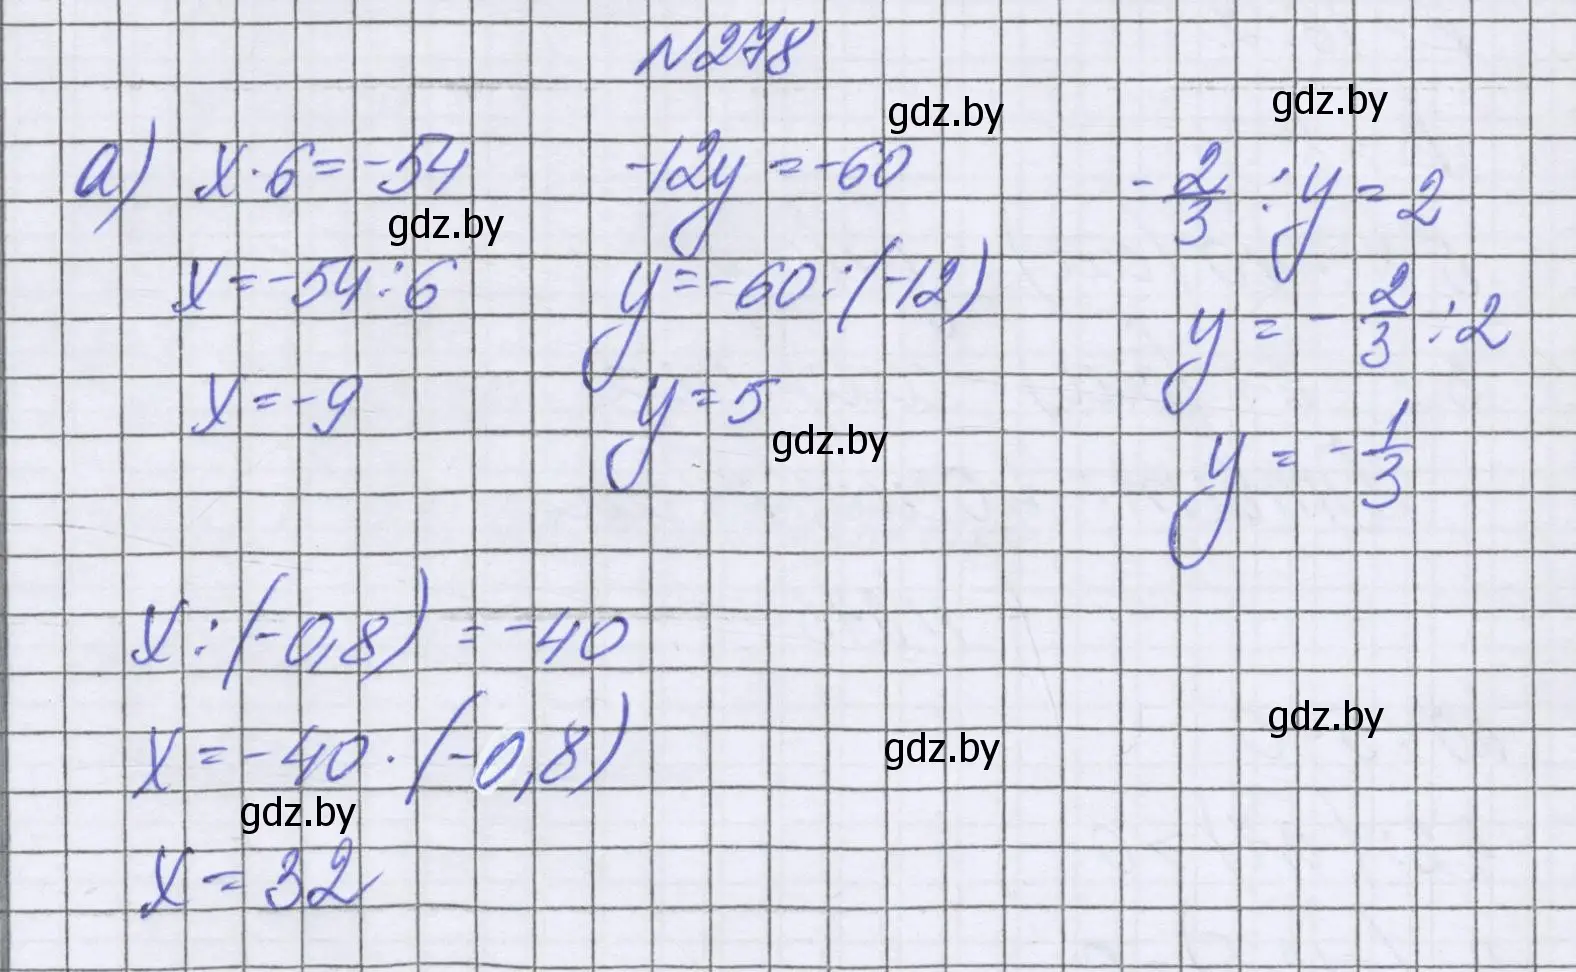 №278
gdz.by
gdz.by
а) x·6=-54
-12y=-60
-2/3 : y = 2
gdz.by
x=-54:6
y=-60:(-12)
y = -2/3 : 2
x=-9
y=5
y = -1/3
gdz.by
x:(-0,8) = -40
x=-40·(-0,8)
gdz.by
gdz.by
gdz.by
x=32